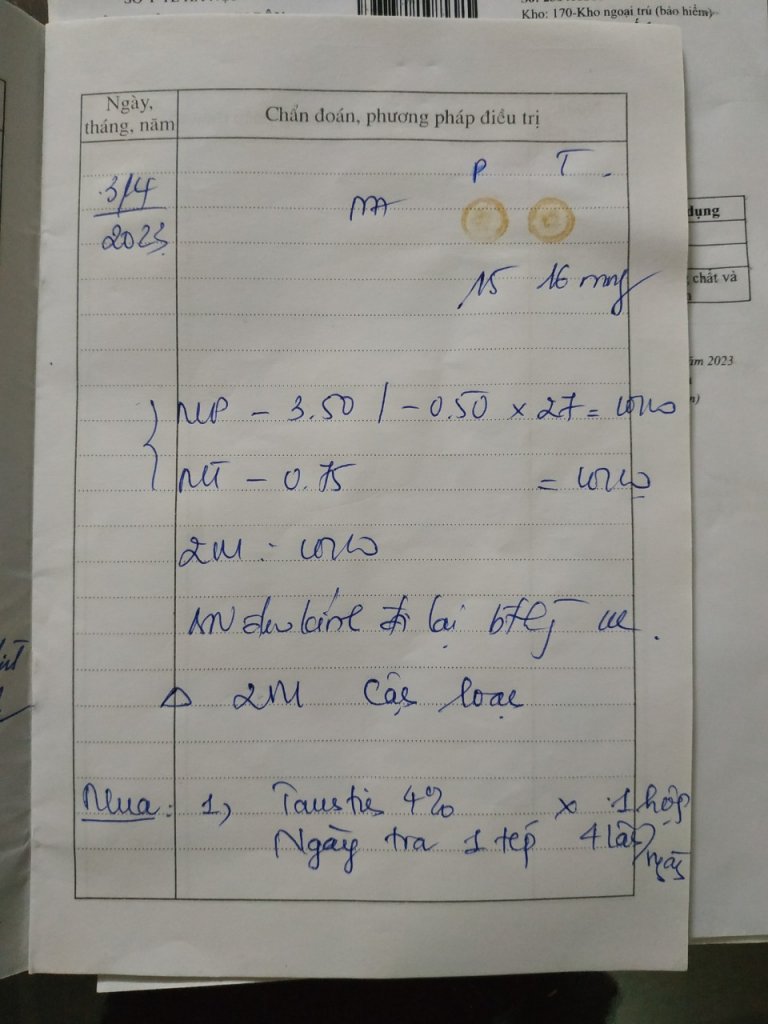 Kho: 170-Kho ngoại trú (bảo hiểm)
Ngày, tháng, năm
Chẩn đoán, phương pháp điều trị
3/4
2023
P T
NA
15 16 mmHg
MP - 3.50 / - 0.50 x 27 = 10/10
MT - 0.75 = 10/10
2M : 10/10
BN đeo kính đi lại
Δ 2M Cận loạn
Mua: 1, 4% x 1 hộp
Ngày tra 1 tép 4 lần/ngày
dụng
chất và
năm 2023